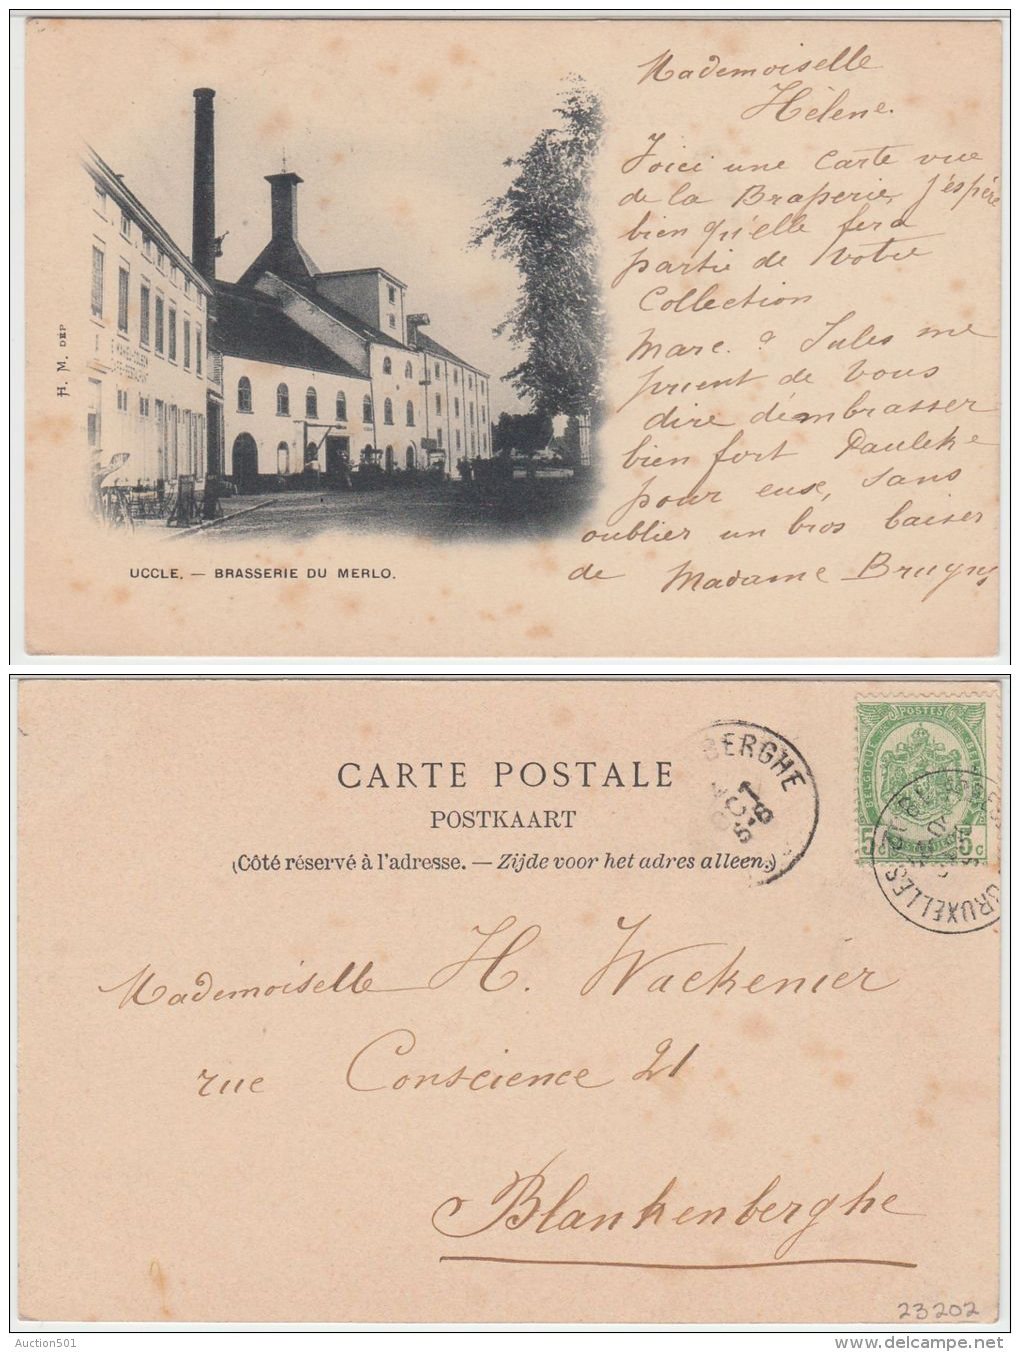 Mademoiselle
Hélène.
Voici une Carte vue
de la Brasserie, j'espère
bien qu'elle fera
partie de votre
Collection
Marc. ? Jules me
prient de vous
dire d'embrasser
bien fort Pauleke
pour eux, sans
oublier un bros baiser
de Madame Bruyns
H. M. DEP
CAFÉ-RESTAURANT
UCCLE. — BRASSERIE DU MERLO.
BERGHE
CARTE POSTALE
POSTKAART
(Côté réservé à l'adresse. — Zijde voor het adres alleen.)
POSTES
BELGIQUE
5c 5c
BRUXELLES
Mademoiselle H. Wackenier
rue Conscience 21
Blankenberghe
23202
Auction501
www.delcampe.net